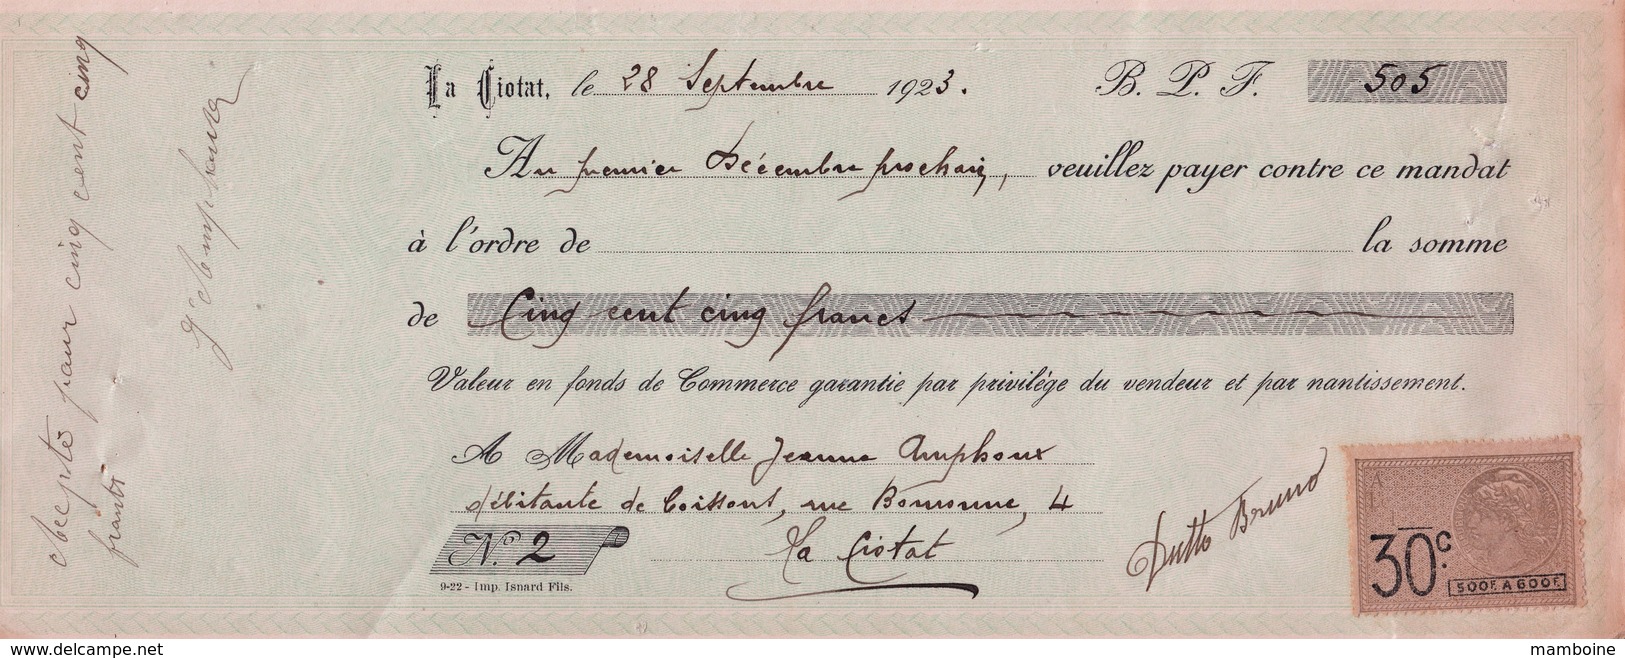 La Ciotat, le 28 Septembre 1923. B. P. F. 505
Au premier Décembre prochain, veuillez payer contre ce mandat
à l'ordre de la somme
de Cinq cent cinq francs
Valeur en fonds de Commerce garantie par privilége du vendeur et par nantissement.
A Mademoiselle Jeanne Amphoux
débitante de boissons, rue Bouronne, 4
La Ciotat
No. 2
9-22 - Imp. Isnard Fils.
Accepté pour cinq cent cinq
francs
J Amphoux
Dutto Bruno
30c.
500F. A 600F.
delcampe.net
mamboine